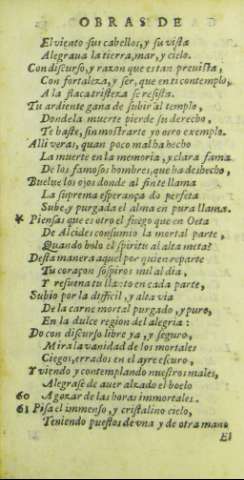 OBRAS DE
El viento sus cabellos, y su vista
Alegraua la tierra, mar, y cielo.
Con discurso, y razon que estan preuista,
Con fortaleza, y ser, que en ti contemplo,
A la flaca tristeza se resista.
Tu ardiente gana de subir al templo,
Donde la muerte pierde su derecho,
Te baste, sin mostrarte yo otro exemplo.
Alli veras, quan poco mal ha hecho
La muerte en la memoria, y clara fama
De los famosos hombres, que ha deshecho,
Buelue los ojos donde al fin te llama
La suprema esperança do perfeta
Sube, y purgada el alma en pura llama.
* Piensas que es otro el fuego que en Oeta
De Alcides consumio la mortal parte,
Quando bolo el spiritu al alta meta?
Desta manera aquel por quien reparte
Tu coraçon sospiros mil al dia,
Y resuena tu llanto en cada parte,
Subio por la difficil, y alta via
De la carne mortal purgado, y puro,
En la dulce region del alegria:
Do con discurso libre ya, y seguro,
Mira la vanidad de los mortales
Ciegos, errados en el ayre escuro,
Y viendo y contemplando nuestros males,
Alegrase de auer alzado el boelo
60 A gozar de las horas immortales.
61 Pisa el immenso, y cristalino cielo,
Teniendo puestos de vna y de otra mano
El